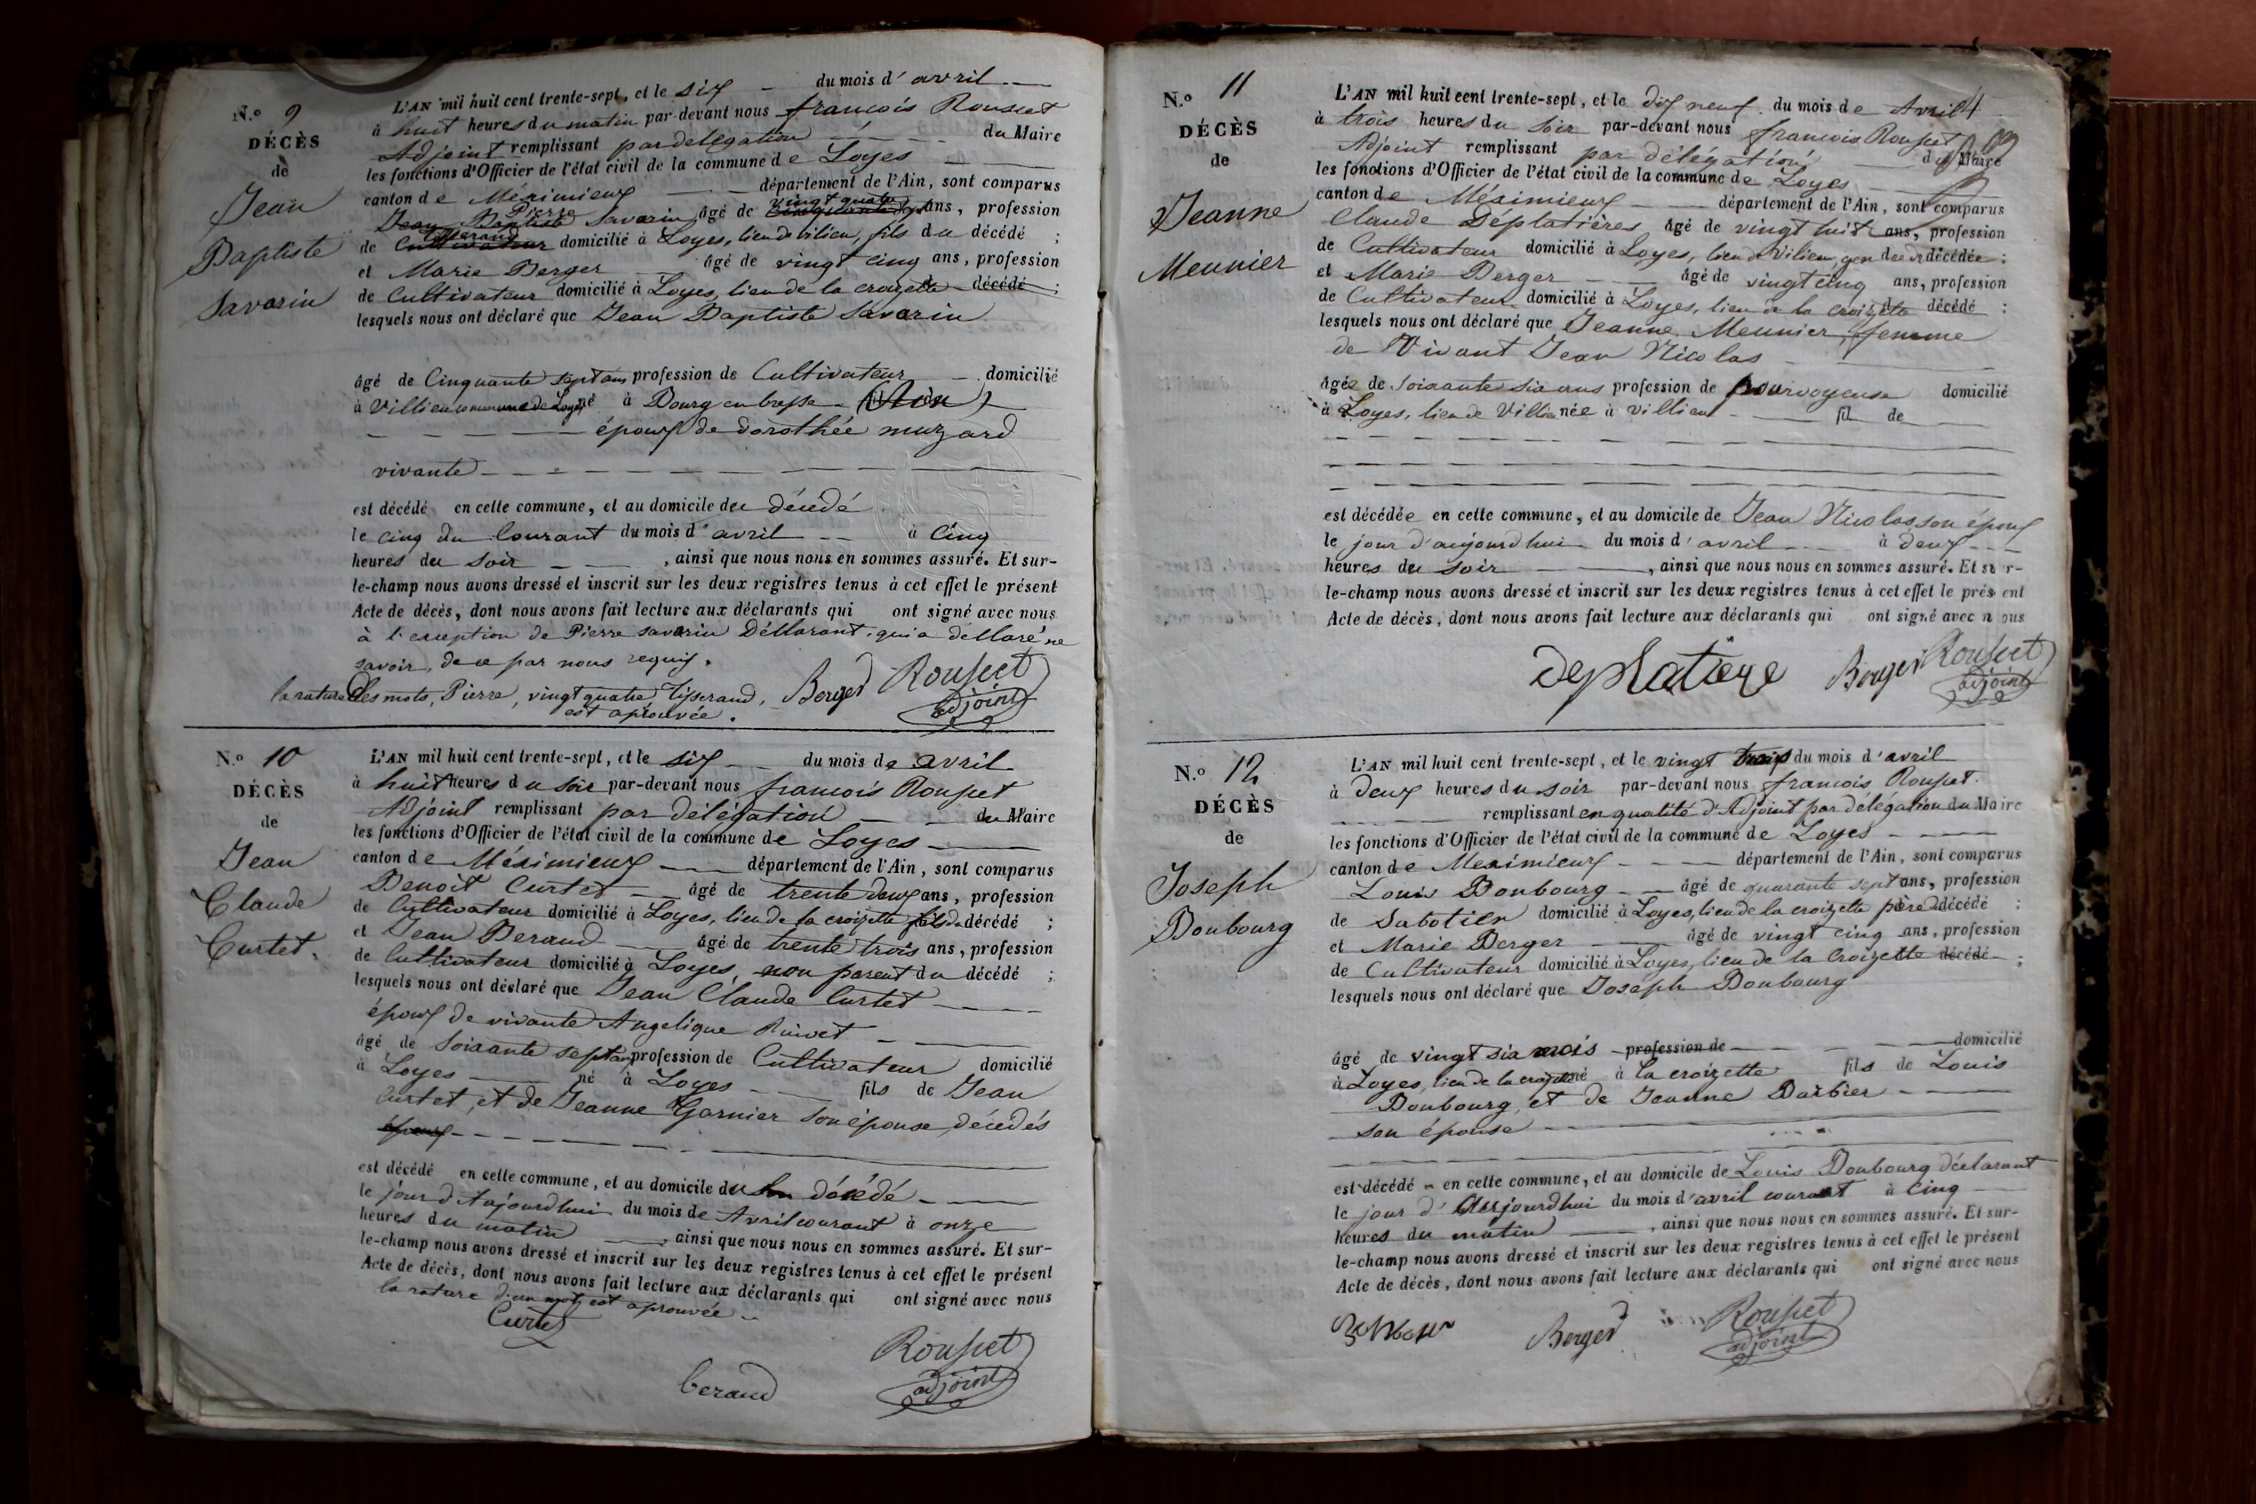 N.º 9
DÉCÈS
de
Jean
Baptiste
Savarin
L'AN mil huit cent trente-sept, et le six du mois d'avril
à huit heures du matin par-devant nous françois Rousset
Adjoint remplissant par délégation du Maire
les fonctions d'Officier de l'état civil de la commune de Loyes
canton de Méximieux département de l'Ain, sont comparus
Pierre vingt quatre
Jean Baptiste Savarin âgé de ans, profession
tisserand
de Cultivateur domicilié à Loyes, lieu de vilieu, fils du décédé ;
et Marie Berger âgé de vingt cinq ans, profession
de Cultivateur domicilié à Loyes, lieu de la croizette décédé ;
lesquels nous ont déclaré que Jean Baptiste Savarin
âgé de Cinquante sept ans profession de Cultivateur domicilié
à Villieu commune de Loyes né à Bourg en bresse
époux de dorothée muzard
vivante
est décédé en cette commune, et au domicile du décédé
le cinq du Courant du mois d'avril à Cinq
heures du soir , ainsi que nous nous en sommes assuré. Et sur-
le-champ nous avons dressé et inscrit sur les deux registres tenus à cet effet le présent
Acte de décès, dont nous avons fait lecture aux déclarants qui ont signé avec nous
à l'exception de Pierre savarin Déclarant, qui a déclaré ne
savoir, de ce par nous requis.
la rature des mots, Pierre, vingt quatre tisserand, Berger Rousset
est aprouvée. adjoint
N.º 10
DÉCÈS
de
Jean
Claude
Curtet.
L'AN mil huit cent trente-sept, et le six du mois de avril
à huit heures du soir par-devant nous françois Rousset
Adjoint remplissant par délégation du Maire
les fonctions d'Officier de l'état civil de la commune de Loyes
canton de Méximieux département de l'Ain, sont comparus
Benoît Curtet âgé de trente deux ans, profession
de Cultivateur domicilié à Loyes, lieu de la croizette fils du décédé ;
et Jean Beraud âgé de trente trois ans, profession
de Cultivateur domicilié à Loyes, non parent du décédé ;
lesquels nous ont déclaré que Jean Claude Curtet
époux de vivante Angelique Ruivet
âgé de soixante sept ans profession de Cultivateur domicilié
à Loyes né à Loyes fils de Jean
Curtet, et de Jeanne Garnier son épouse, décédés
époux
est décédé en cette commune, et au domicile du décédé
le jour d'Aujourdhui du mois de Avril courant à onze
heures du matin , ainsi que nous nous en sommes assuré. Et sur-
le-champ nous avons dressé et inscrit sur les deux registres tenus à cet effet le présent
Acte de décès, dont nous avons fait lecture aux déclarants qui ont signé avec nous
la rature d'un mot est aprouvée
Curtet
Rousset
beraud adjoint
N.º 11
DÉCÈS
de
Jeanne
Meunier
L'AN mil huit cent trente-sept, et le dix neuf du mois de Avril
à trois heures du soir par-devant nous françois Rousset
Adjoint remplissant par délégation du Maire
les fonctions d'Officier de l'état civil de la commune de Loyes
canton de Méximieux département de l'Ain, sont comparus
Claude Déplatières âgé de vingt huit ans, profession
de Cultivateur domicilié à Loyes, lieu de Vilieu, gendre de décédée ;
et Marie Berger âgé de vingt cinq ans, profession
de Cultivateur domicilié à Loyes, lieu de la croizette décédé ;
lesquels nous ont déclaré que Jeanne Meunier, femme
de Vivant Jean Nicolas
âgée de soixante six ans profession de pourvoyeuse domicilié
à Loyes, lieu de Villieu née à villieu fil de
est décédée en cette commune, et au domicile de Jean Nicolas son époux
le jour d'aujourdhui du mois d'avril à deux
heures du soir , ainsi que nous nous en sommes assuré. Et sur-
le-champ nous avons dressé et inscrit sur les deux registres tenus à cet effet le présent
Acte de décès, dont nous avons fait lecture aux déclarants qui ont signé avec nous
deplatiere Berger Rousset
adjoint
N.º 12
DÉCÈS
de
Joseph
Boubourg
L'AN mil huit cent trente-sept, et le vingt trois du mois d'avril
à deux heures du soir par-devant nous françois Rousset
remplissant en qualité d'Adjoint par délégation du Maire
les fonctions d'Officier de l'état civil de la commune de Loyes
canton de Meximieux département de l'Ain, sont comparus
Louis Boubourg âgé de quarante sept ans, profession
de Sabotier domicilié à Loyes, lieu de la croizette père du décédé ;
et Marie Berger âgé de vingt cinq ans, profession
de Cultivateur domicilié à Loyes, lieu de la Croizette décédé ;
lesquels nous ont déclaré que Joseph Boubourg
âgé de vingt six mois profession de domicilié
à Loyes, lieu de la croizette né à la croizette fils de Louis
Boubourg, et de Jeanne Barbier
son épouse
est décédé en cette commune, et au domicile de Louis Boubourg déclarant
le jour d'Aujourdhui du mois d'avril courant à cinq
heures du matin , ainsi que nous nous en sommes assuré. Et sur-
le-champ nous avons dressé et inscrit sur les deux registres tenus à cet effet le présent
Acte de décès, dont nous avons fait lecture aux déclarants qui ont signé avec nous
Berger Rousset
adjoint